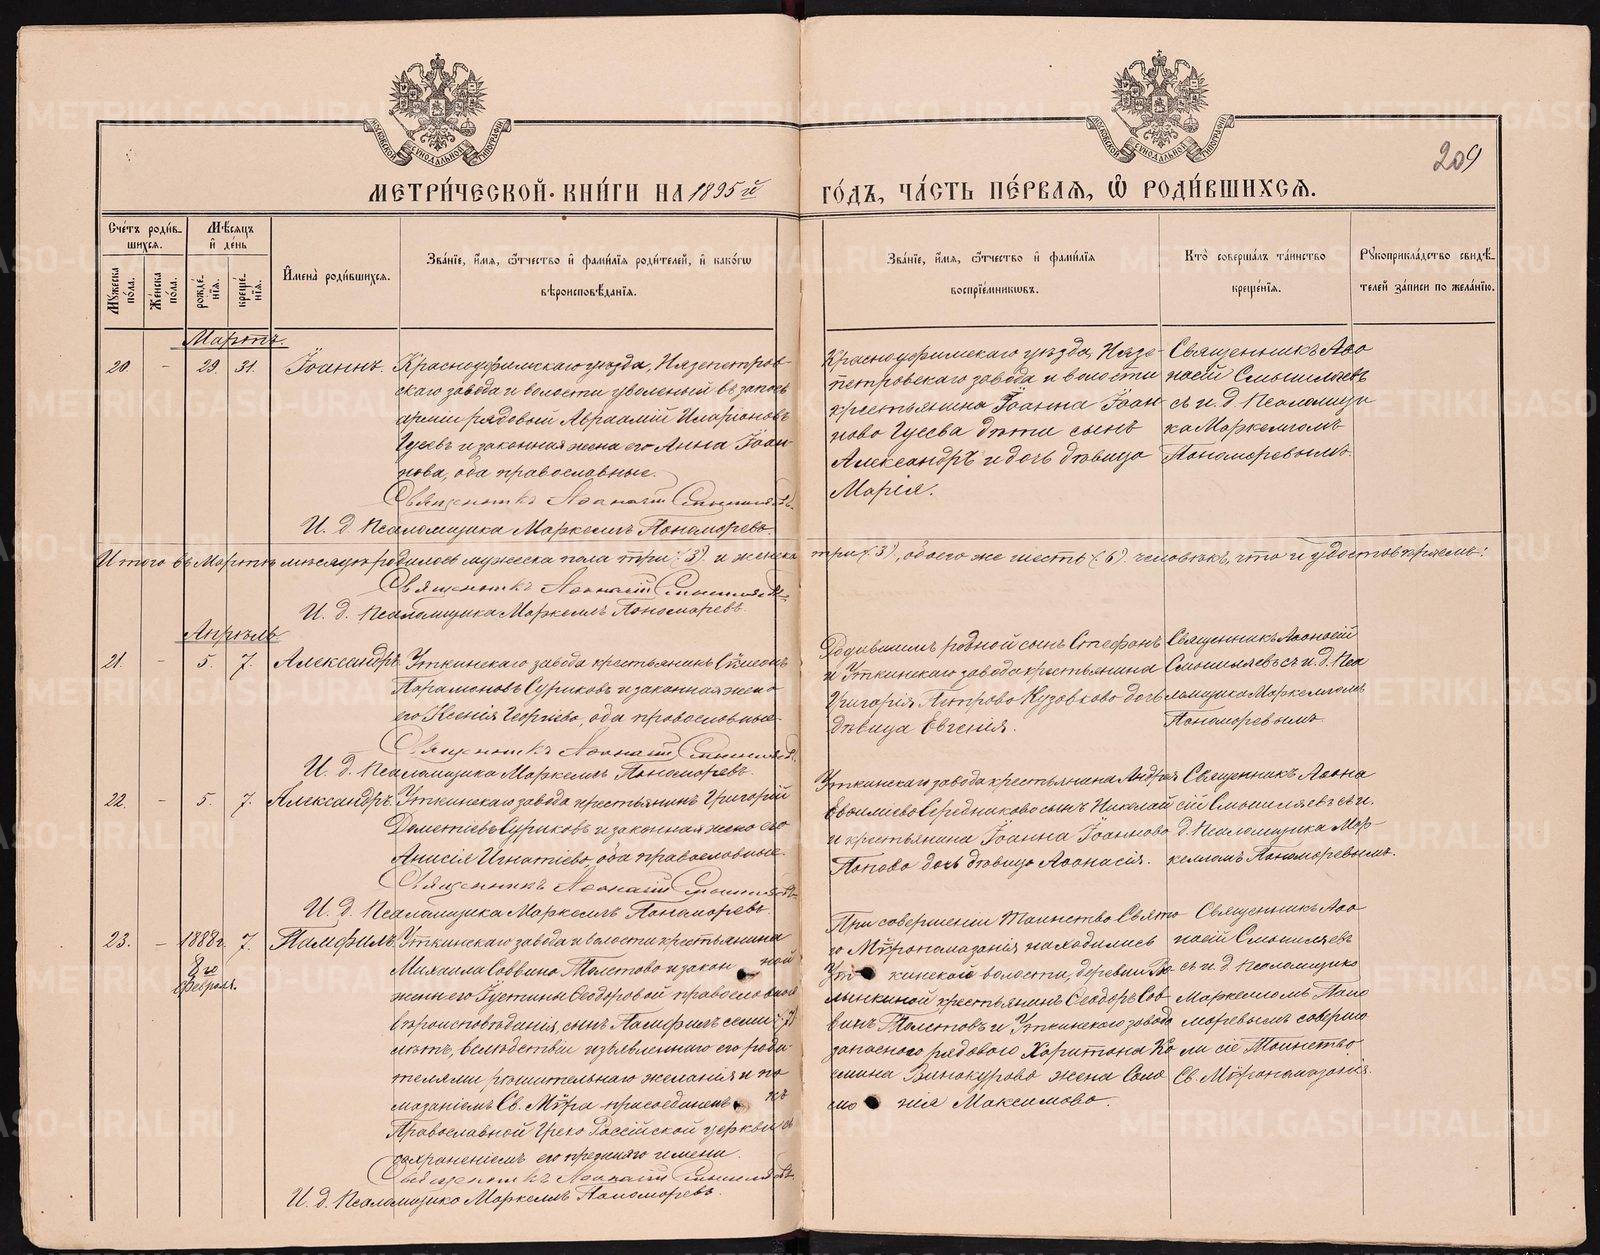 209
МЕТРИ́ЧЕСКОЙ КНИ́ГИ НА 1895й ГО́ДЪ, ЧА́СТЬ ПЕ́РВАЯ, Ѡ РОДИ́ВШИХСЯ.
Сче́тъ роди́вшихся.
Мꙋжеска по́ла.
Же́нска по́ла.
Мѣ́сяцъ и де́нь
рожде́нїя.
креще́нїя.
Имена̀ роди́вшихся.
Зва́нїе, и́мя, ѻ́тчество и фами́лїя роди́телей, и како́гѡ
вѣроисповѣ́данїя.
Зва́нїе, и́мя, ѻ́тчество и фами́лїя
воспрїе́мникѡвъ.
Кто̀ соверша́лъ та́инство
креще́нїя.
Рꙋкоприкла́дство свидѣ́-
телей за́писи по жела́нїю.
Мартъ.
20 - 29. 31. Іоаннъ.
Красноуфимскаго уѣзда, Нязепетров-
скаго завода и волости уволенный въ запасъ
арміи рядовый Авраамій Иларіоновъ
Гусевъ и законная жена его Анна Іоан-
нова, оба православные.
Священникъ Аѳанасій Смышляевъ.
И. д. Псаломщика Маркеллъ Пономаревъ.
Красноуфимскаго уѣзда, Нязе-
петровскаго завода и волости
крестьянина Іоанна Іоан-
нова Гусева дѣти сынъ
Александръ и дочь дѣвица
Марія.
Священникъ Аѳа
насій Смышляевъ
съ и. д. Псаломщи
ка Маркелломъ
Пономаревымъ.
Итого въ Мартѣ мѣсяцѣ родилось мужеска пола три (3) и женска три (3), обоего же шесть (6) человѣкъ, что и удостовѣряемъ:
Священникъ Аѳанасій Смышляевъ.
И. д. Псаломщика Маркеллъ Пономаревъ.
Апрѣль
21. - 5. 7. Александръ.
Уткинскаго завода крестьянинъ Сѵмеонъ
Парамоновъ Суриковъ и законная жена
его Ксенія Георгіева, оба православные.
Священникъ Аѳанасій Смышляевъ.
И. д. Псаломщика Маркеллъ Пономаревъ.
Родившимъ родной сынъ Стефанъ
и Уткинскаго завода крестьянина
Григорія Петрова Кузовкова дочь
дѣвица Евгенія.
Священникъ Аѳанасій
Смышляевъ съ и. д. Пса
ломщика Маркелломъ
Пономаревымъ.
22. - 5. 7. Александръ.
Уткинскаго завода крестьянинъ Григорій
Дометіевъ Суриковъ и законная жена его
Анисія Игнатіева, оба православные.
Священникъ Аѳанасій Смышляевъ.
И. д. Псаломщика Маркеллъ Пономаревъ.
Уткинскаго завода крестьянина Андрея
Евѳиміева Середникова сынъ Николай
и крестьянина Іоанна Іоаннова
Попова дочь дѣвица Аѳанасія.
Священникъ Аѳана
сій Смышляевъ съ и.
д. Псаломщика Мар-
келломъ Пономаревымъ.
23. - 1888 г. 8го Февраля. 7. Памфилъ.
Уткинскаго завода и волости крестьянина
Михаила Саввина Толстова и законной
жены его Іустины Ѳеодоровой православнаго
вѣроисповѣданія, сынъ Памфилъ семи (7)
лѣтъ, вслѣдствіи изъявленнаго его роди-
телями рѣшительнаго желанія и по-
мазаніемъ Св. Мѵра присоединенъ къ
Православной Греко Россійской церкви съ
сохраненіемъ его прежняго имени.
Священникъ Аѳанасій Смышляевъ.
И. д. Псаломщика Маркеллъ Пономаревъ.
При совершеніи Таинства Свята
го Мѵропомазанія находились
Уткинской волости, деревни
крестьянинъ Ѳеодоръ Сав
винъ Толстовъ и Уткинскаго завода
запаснаго рядового Харитона Ко
смина Винокурова жена Соло
монія Максимова.
Священникъ Аѳа
насій Смышляевъ
съ и. д. Псаломщика
Маркелломъ Поно
маревымъ соверши
ли сіе Таинство
Св. Мѵропомазанія.
METRIKI.GASO-URAL.RU